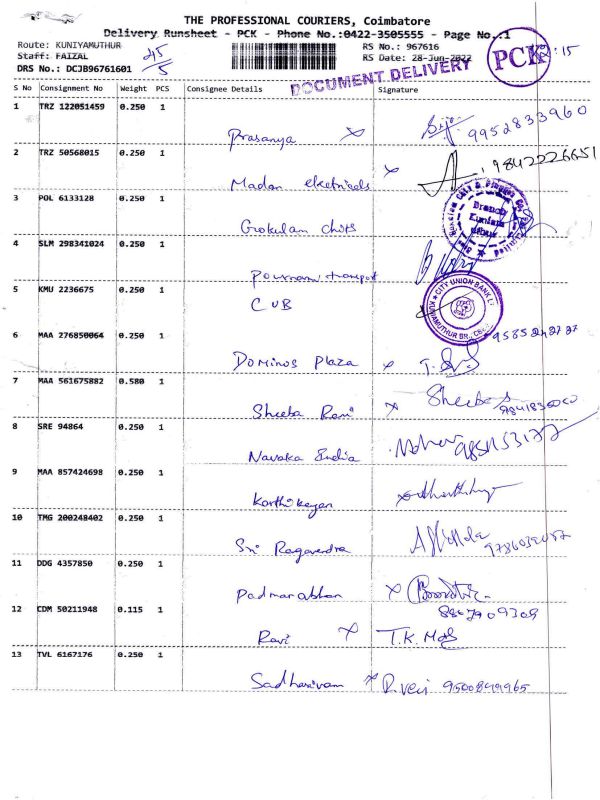 THE PROFESSIONAL COURIERS, Coimbatore
Delivery Runsheet - PCK - Phone No.:0422-3505555 - Page No.:1
Route: KUNIYAMUTHUR
Staff: FAIZAL
DRS No.: DCJB96761601
45/5
RS No.: 967616
RS Date: 28-Jun-2022
DOCUMENT DELIVERY
PCK
:15
S No Consignment No Weight PCS Consignee Details Signature
1 TRZ 122051459 0.250 1
Prasanya x 9952833960
2 TRZ 50568015 0.250 1
Madan elketricals x 9842226651
3 POL 6133128 0.250 1
Gokulam chits
Branch
4 SLM 298341024 0.250 1
Pournami transport
5 KMU 2236675 0.250 1
CUB
CITY UNION BANK
KUNIYAMUTHUR BR.
6 MAA 276850064 0.250 1
Dominos Plaza x
7 MAA 561675882 0.580 1
Sheeba Rani x Sheeba
8 SRE 94864 0.250 1
Navaka India
9 MAA 857424698 0.250 1
Karthikeyan
10 TMG 200248402 0.250 1
Sri Ragavendra
11 DDG 4357850 0.250 1
Padmanabhan x
8807909309
12 CDM 50211948 0.115 1
Ravi x T.K.
13 TVL 6167176 0.250 1
Sadhasivam x 9500899965